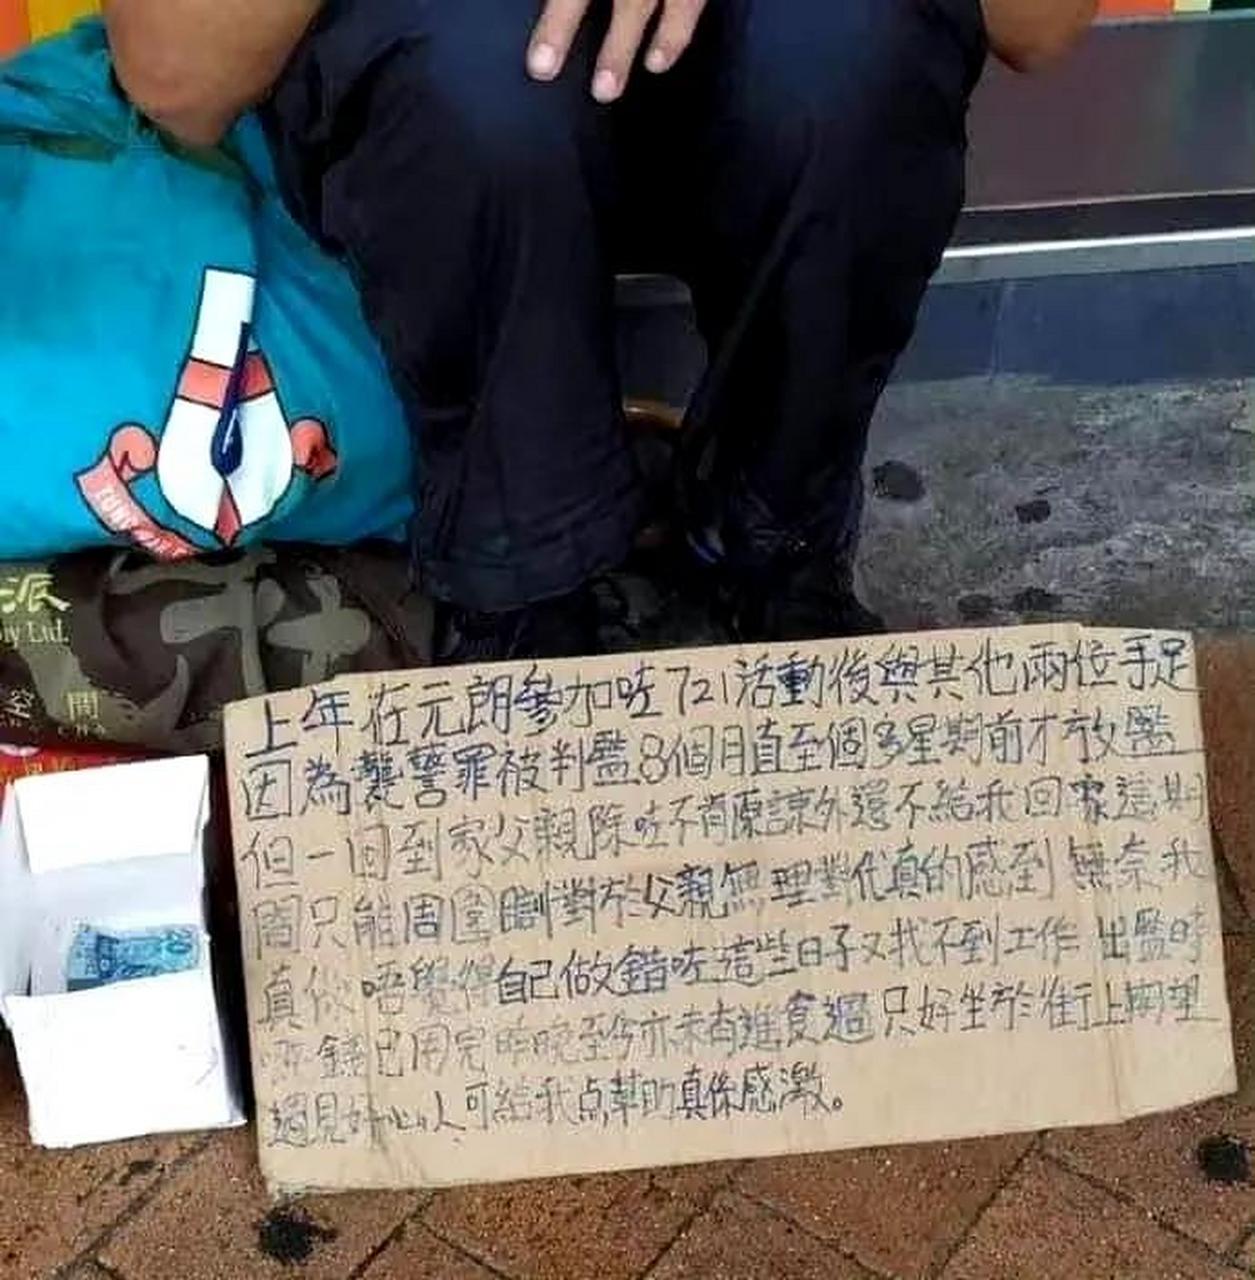 派
Ltd.
間
20
上年在元朗參加咗721活動後與其他兩位手足
因為襲警罪被判監8個月直至個多星期前才放監
但一回到家父親除咗不肯原諒外還不給我回家這期
間只能周圍瞓對於父親無理對代真的感到無奈我
真係唔覺得自己做錯咗這些日子又找不到工作出監時
錢已用完昨晚至今亦未有進食過只好坐於街上期望
遇見好心人可給我点幫助真係感激。